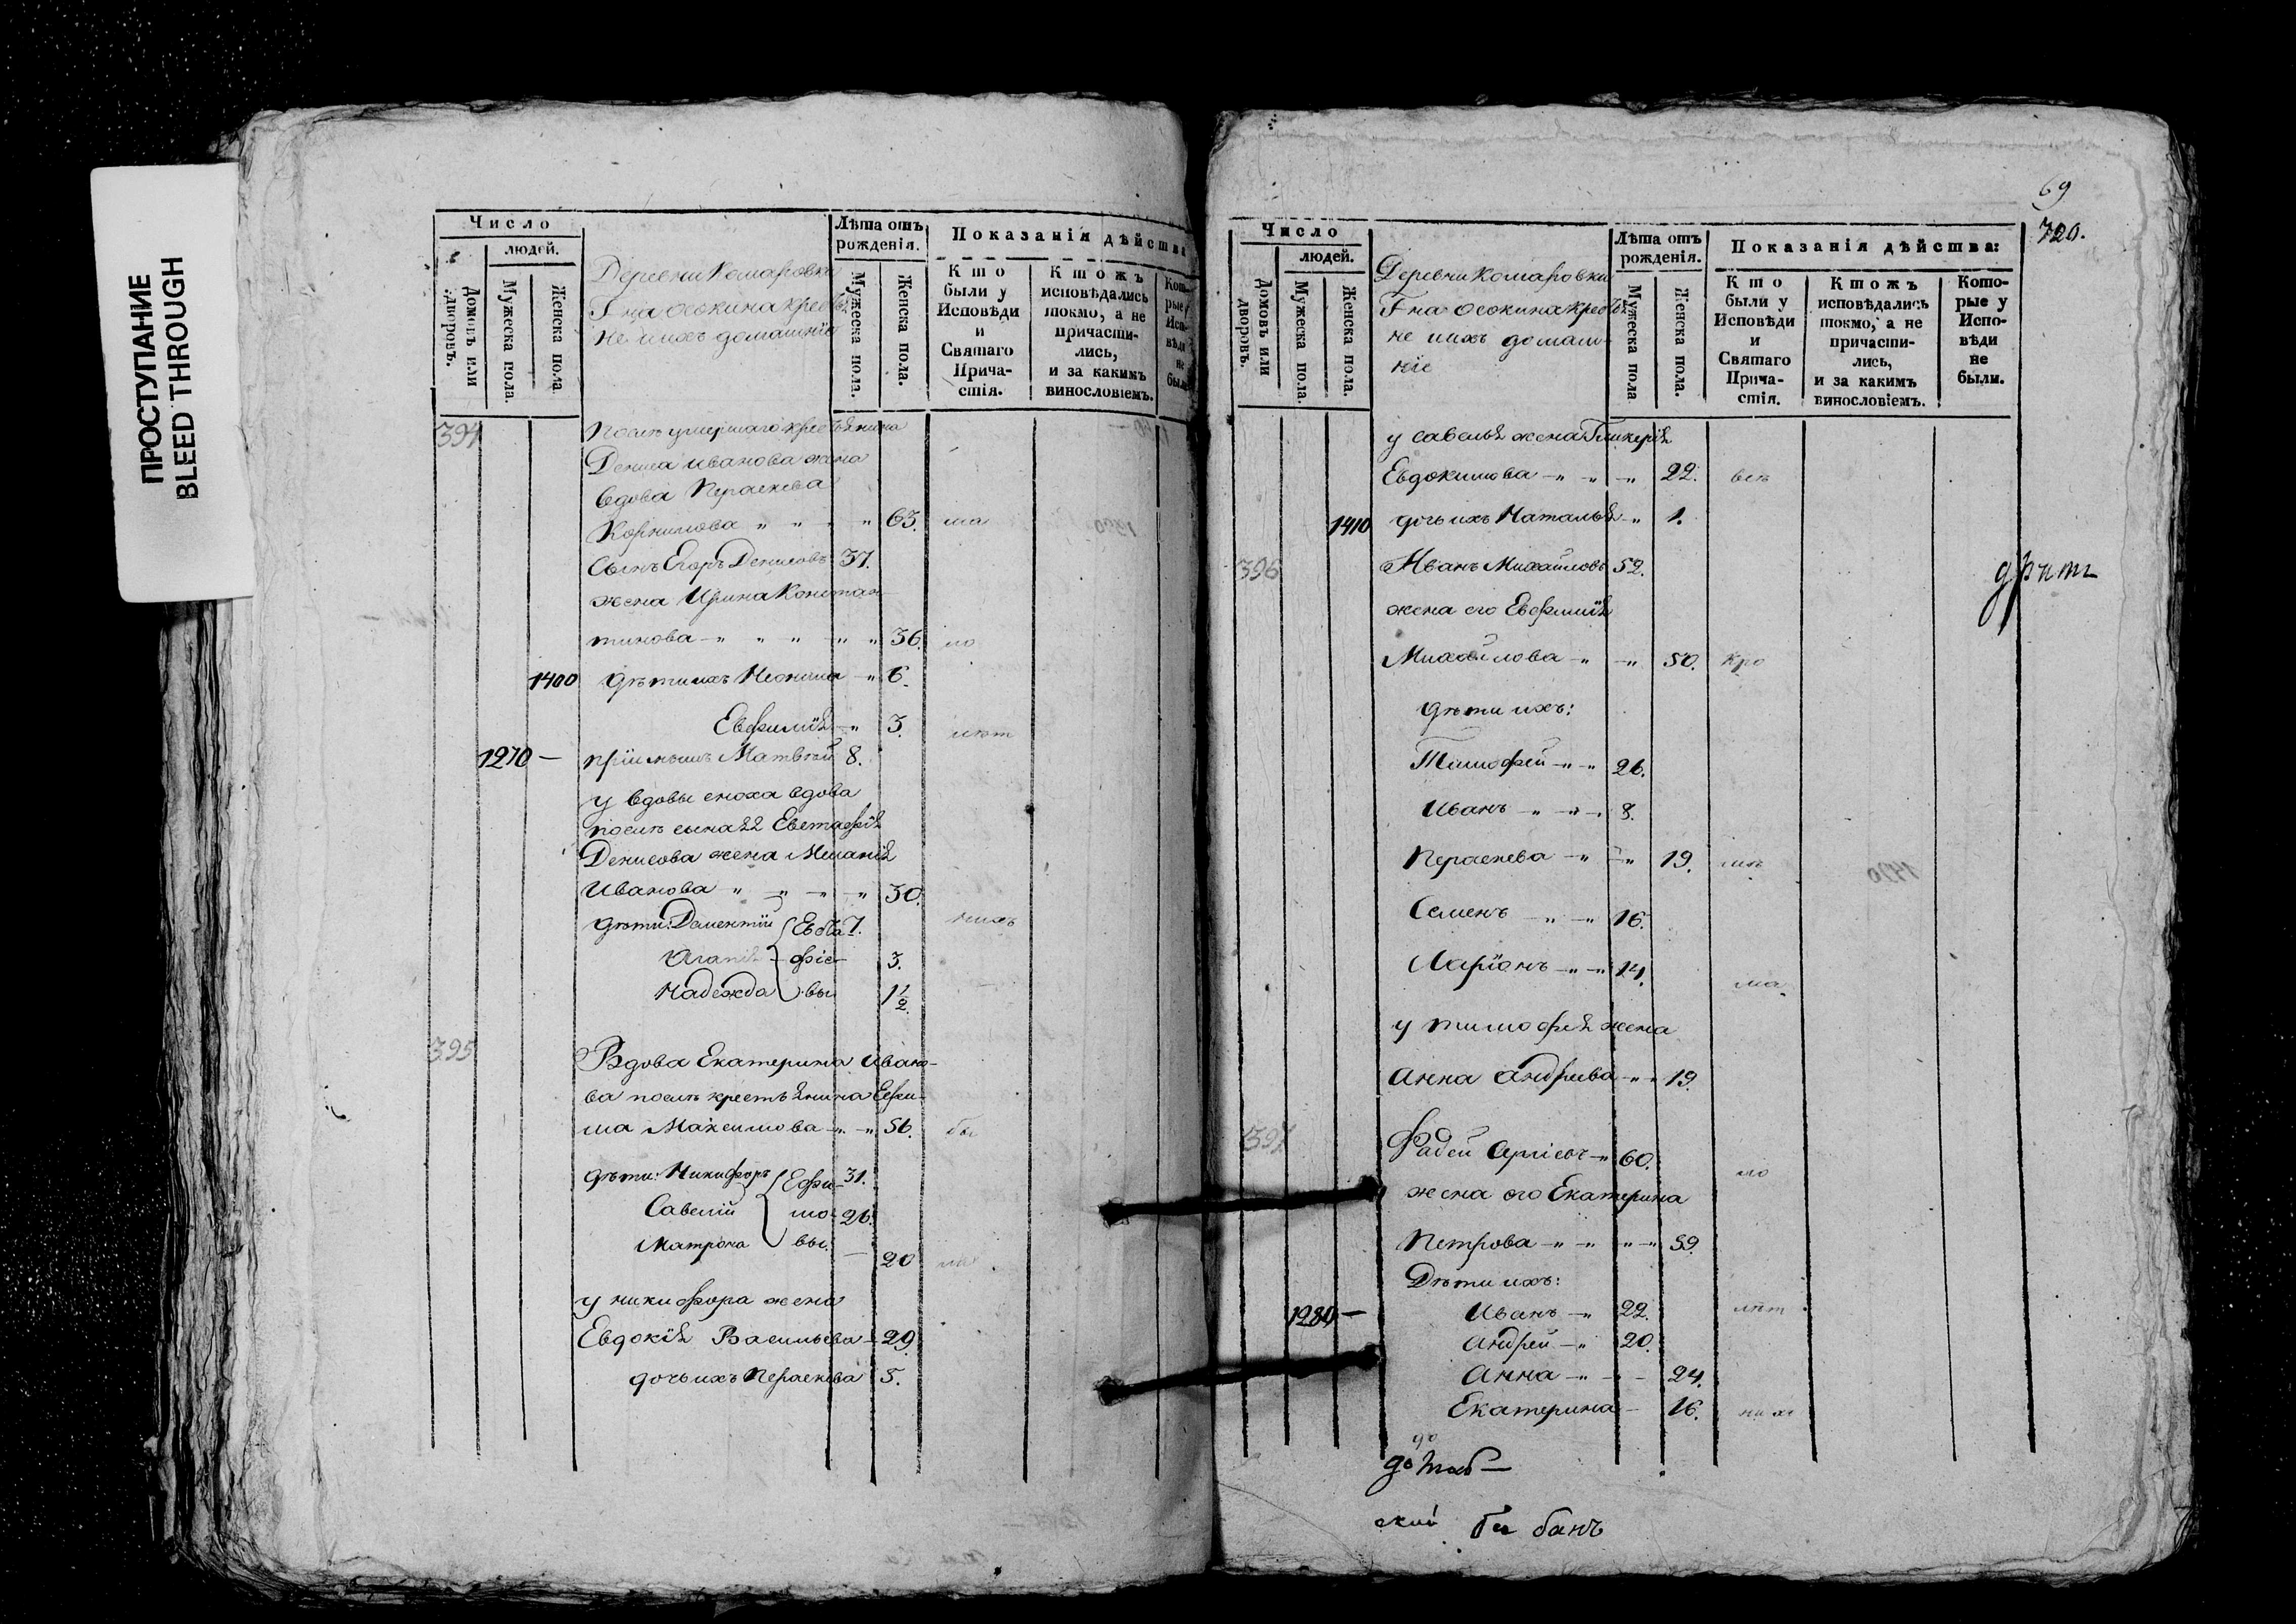 ПРОСТУПАНИЕ
BLEED THROUGH
Число
людей.
Домовъ или дворовъ.
Мужеска пола.
Женска пола
Деревни Комаровки
Гна Осокина кресть
не и ихъ домашнїе
Лѣта отъ рожденія.
Мужеска пола.
Женска пола.
Показанія дѣйства
Кто были у Исповѣди и Святаго Прича-стія.
Ктожъ исповѣдались токмо, а не причасти-лись, и за какимъ винословіемъ.
Кото-рые у Испо-вѣди не были
394 послѣ умершаго крестьянина
Дениса Иванова жена
вдова Параскева
Корнилова " " " " 63. ша
сынъ Егоръ Денисовъ 37.
жена Ирина Констан
тинова " " " " " 36. по
1400 дѣти ихъ Неонила " 6.
Евфимїя " 3.
1270 — прїимышъ Матвѣй 8.
у вдовы сноха вдова
послѣ сына ея Евстафїя
Денисова жена Меланїя
Иванова " " " " 30.
дѣти: Дементїй Евста 7.
Агапїя фїе 3.
Надежда вы 1 1/2.
395 Вдова Екатерина Ивано-
ва послѣ крестьянина Ефи-
ма Максимова " " 56. бы
дѣти: Никифоръ Ефи- 31.
Савелїй мо- 26.
Матрона вы. — 20
у Никифора жена
Евдокїя Васильева 29.
дочь ихъ Параскева 5.
69
720.
Число
людей.
Домовъ или дворовъ.
Мужеска пола.
Женска пола.
Деревни Комаровки
Гна Осокина кресть
не и ихъ домаш-
нїе
Лѣта отъ рожденія.
Мужеска пола
Женска пола.
Показанія дѣйства:
Кто были у Исповѣди и Святаго Прича-стія.
Ктожъ исповѣдались токмо, а не причасти-лись, и за какимъ винословіемъ.
Кото-рые у Испо-вѣди не были.
у Савелья жена Гликерїя
Евдокимова " " " 22. всѣ
1410 дочь ихъ Наталья " 1.
396 Иванъ Михайловъ 52.
жена его Евфимїя
Михайлова " " 50. кро
дѣти ихъ:
Тимофей " " 26.
Иванъ " " 8.
Параскева " " 19. мѣ
Семенъ " " 16.
Ларїонъ " " 14.
ма
у Тимофея жена
Анна Андреева " " 19.
397 Фадей " 60.
по
жена его Екатерина
Петрова " " " " 59.
Дѣти ихъ:
1280 — Иванъ " 22. лѣт
Андрей " 20.
Анна " — 24.
Екатерина — 16.